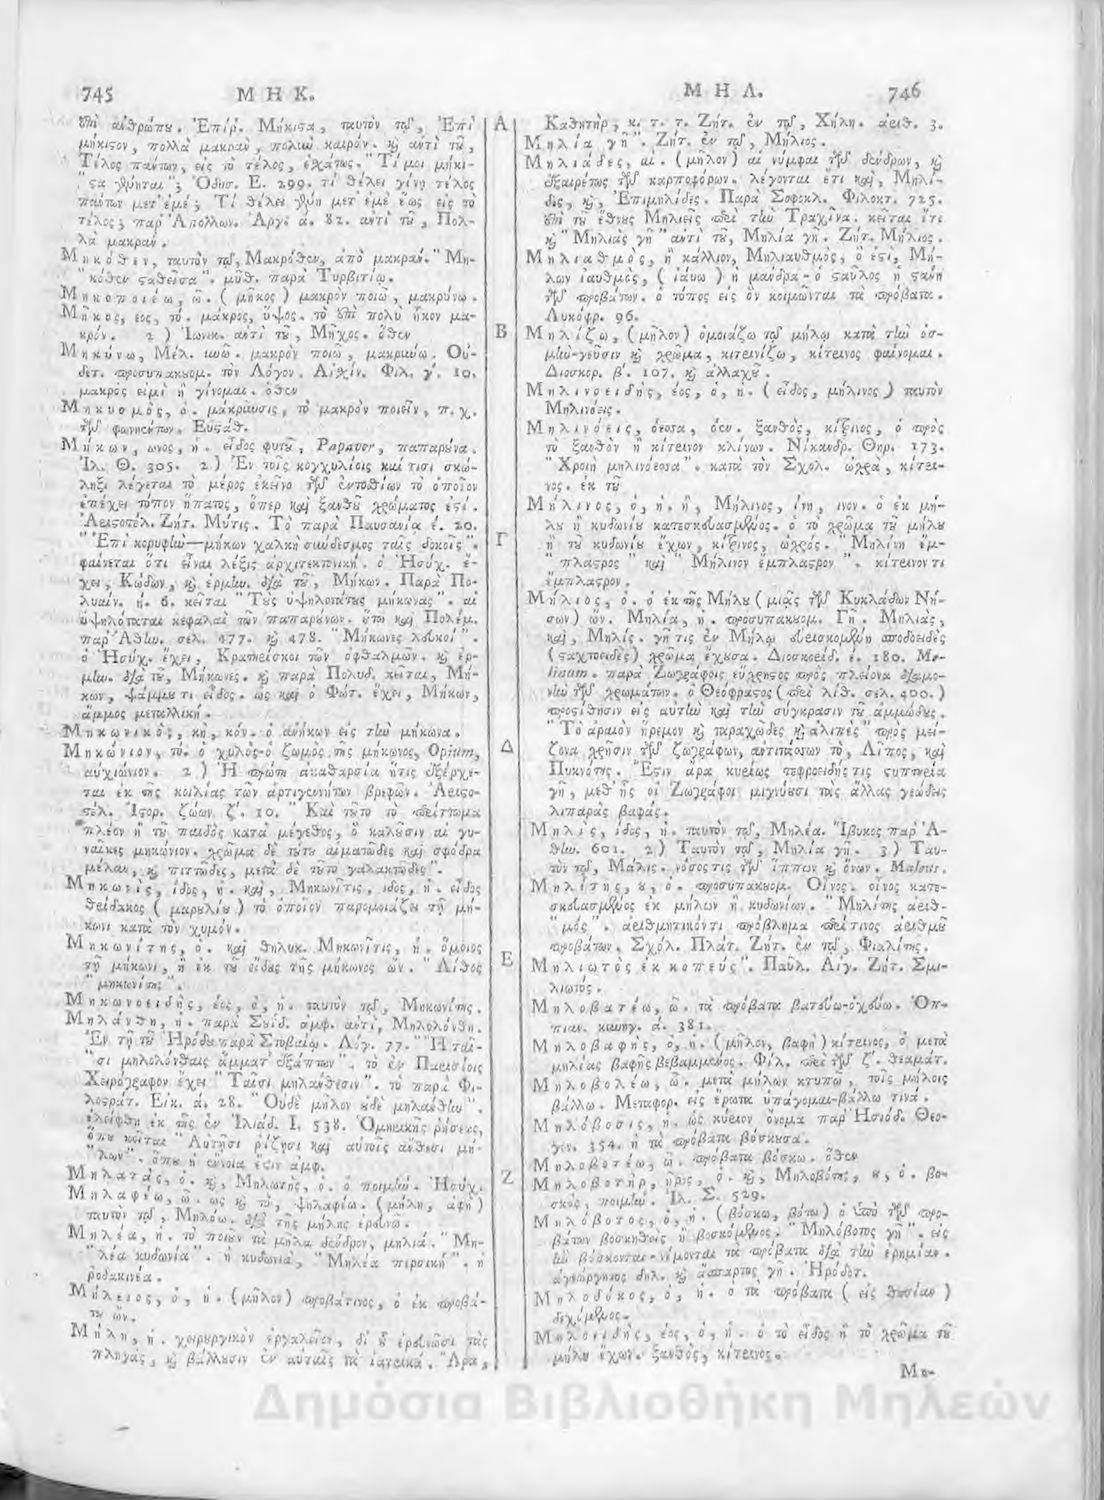 745 ΜΗΚ.
ἐπὶ ἀνθρώπου. Ἐπίρ. Μήκιστα, ταυτὸν τῷ, Ἐπὶ
μήκιστον, πολλὰ μακραν, πολὺν καιρόν. καὶ ἀντὶ τοῦ,
Τέλος πάντων, εἰς τὸ τέλος, ἐσχάτως. "Τί μοι μήκι-
"στα γένηται"; Ὀδυσ. Ε. 299. τί θέλει γίνῃ τέλος
πάντων μετ' ἐμέ; Τί θέλει γένῃ μετ' ἐμέ ἕως εἰς τὸ
τέλος; παρ' Ἀπολλων. Ἀργ. α. 82. ἀντὶ τοῦ, Πολ-
λὰ μακραν.
Μηκόθεν, ταυτὸν τῷ, Μακρόθεν, ἀπὸ μακραν. "Μη-
"κόθεν σταθεῖσα". μύθ. παρὰ Τυρβιτίῳ.
Μηκοποιέω, ῶ. (μῆκος) μακρὸν ποιῶ, μακρύνω.
Μῆκος, εος, τό. μάκρος, ὕψος. τὸ ἐπὶ πολὺ ἧκον μα-
κρόν. 2) Ἰωνικ. ἀντὶ τοῦ, Μῆχος. ὅθεν
Μηκύνω, Μέλ. υνῶ. μακρὸν ποιῶ, μακρύνω. Οὐ-
δετ. προσυπακουομ. τὸν Λόγον. Αἰσχίν. Φιλ. γ'. 10.
μακρὸς εἰμὶ ἢ γίνομαι. ὅθεν
Μηκυσμὸς, ὁ. μάκρυνσις, τὸ μακρὸν ποιεῖν, π. χ.
τῶν φωνηέντων. Εὐσταθ.
Μήκων, ωνος, ἡ. εἶδος φυτοῦ, Papaver, παπαρούνα.
Ἰλ. Θ. 305. 2) Ἐν τοῖς κογχυλίοις καί τισι σκώ-
ληξι λέγεται τὸ μέρος ἐκεῖνο τῶν ἐντοσθίων τὸ ὁποῖον
ἐπέχει τόπον ἥπατος, ὅπερ καὶ ξανθοῦ χρώματος ἐστί.
Ἀριστοτέλ. Ζήτ. Μύτις. Τὸ παρὰ Παυσανίᾳ ε. 20.
"Ἐπὶ κορυφὴν—μήκων χαλκῆ σύνδεσμος ταῖς δοκοῖς".
φαίνεται ὅτι εἶναι λέξις ἀρχιτεκτονική. ὁ Ἡσύχ. ἔ-
χει, Κώδων, καὶ ἑρμην. διὰ τοῦ, Μήκων. Παρὰ Πο-
λυαίν. η. 6. κεῖται "Τοὺς ὑψηλοτάτους μήκωνας". αἱ
ὑψηλόταται κεφαλαὶ τῶν παπαρούνων. οὕτω καὶ Πολέμ.
παρ' Ἀθην. σελ. 477. καὶ 478. "Μήκωνες λευκοί".
ὁ Ἡσύχ. ἔχει, Κρατηρίσκοι τῶν ὀφθαλμῶν. καὶ ἑρ-
μην. διὰ τοῦ, Μήκωνες. καὶ παρὰ Πολυδ. κεῖται, Μή-
κων, ψάμμου τι εἶδος. ὡς καὶ ὁ Φώτ. ἔχει, Μήκων,
ἄμμος μεταλλική.
Μηκωνικὸς, κὴ, κόν. ὁ ἀνήκων εἰς τὴν μήκωνα.
Μηκώνιον, τό. ὁ χυλὸς-ὁ ζωμὸς τῆς μήκωνος, Opium,
ἀφχιώνιον. 2) Ἡ πρώτη ἀκαθαρσία ἥτις ἐξέρχε-
ται ἐκ τῆς κοιλίας τῶν ἀρτιγεννήτων βρεφῶν. Ἀριστο-
τέλ. Ἱστορ. ζώων ζ'. 10. "Καὶ τοῦτο τὸ περίττωμα
"πλέον ἢ τοῦ παιδὸς κατὰ μέγεθος, ὃ καλοῦσιν αἱ γυ-
ναῖκες μηκώνιον. χρῶμα δὲ τούτου αἱματῶδες καὶ σφόδρα
μέλαν, καὶ πιττῶδες, μετὰ δὲ τοῦτο γαλακτῶδες".
Μηκωνὶς, ίδος, ἡ. καὶ, Μηκωνῖτις, ιδος, ἡ. εἶδος
θρίδακος (μαρουλίου) τὸ ὁποῖον παρομοιάζει τῇ μή-
κωνι κατὰ τὸν χυμόν.
Μηκωνίτης, ὁ. καὶ θηλυκ. Μηκωνῖτις, ἡ. ὅμοιος
τῇ μήκωνι, ἢ ἐκ τοῦ εἴδους τῆς μήκωνος ὤν. "Λίθος
"μηκωνίτης".
Μηκωνοειδὴς, έος, ὁ, ἡ. ταυτὸν τῷ, Μηκωνίτης.
Μηλάνθη, ἡ. παρὰ Σουΐδ. ἀμφ. ἀντὶ, Μηλολόνθη.
Ἐν τῇ τοῦ Ἡρόδου παρὰ Στοβαίῳ. Λόγ. 77. "Ἢ ταῖ-
"σι μηλολόνθαις ἅμματ' ἐξάπτων". τὸ ἐν Παρισίοις
Χειρόγραφον ἔχει "Ταῖσι μηλάνθεσιν". τὸ παρὰ Φι-
λοστράτ. Εἰκ. α. 28. "Οὐδὲ μῆλον οὐδὲ μηλάνθην".
ἐλείφθη ἐκ τῆς ἐν Ἰλιάδ. Ι. 538. Ὁμηρικῆς ῥήσεως,
ὅπου κεῖται "Αὐτῇσι ῥίζῃσι καὶ αὐτοῖς ἄνθεσι μή-
"λων". ὅπου ἡ ἔννοια ἐστὶν ἀμφ.
Μηλατὰς, ὁ. καὶ, Μηλωτὴς, ὁ. ὁ ποιμήν. Ἡσύχ.
Μηλαφέω, ῶ. ὡς καὶ τὸ, ψηλαφέω. (μήλη, ἀφή)
ταυτὸν τῷ, Μηλόω. διὰ τῆς μήλης ἐρευνῶ.
Μηλέα, ἡ. τὸ ποιοῦν τὰ μῆλα δένδρον, μηλιά. "Μη-
"λέα κυδωνία". ἡ κυδωνιὰ, "Μηλέα περσική". ἡ
ῥοδακινέα.
Μήλειος, ὁ, ἡ. (μῆλον) προβάτινος, ὁ ἐκ προβά-
του ὤν.
Μήλη, ἡ. χειρουργικὸν ἐργαλεῖον, δι' οὗ ἐρευνῶσι τὰς
πληγὰς, καὶ βάλλουσιν ἐν αὐταῖς τὰ ἰατρικά.
Α
Β
Γ
Δ
Ε
Ζ
ΜΗΛ. 746
Καθητὴρ, κ. τ. τ. Ζήτ. ἐν τῷ, Χήλη. ἀριθ. 3.
Μηλία γῆ". Ζήτ. ἐν τῷ, Μήλιος.
Μηλιάδες, αἱ. (μῆλον) αἱ νύμφαι τῶν δένδρων, καὶ
ἐξαιρέτως τῶν καρποφόρων. λέγονται ἔτι καὶ, Μηλί-
δες, καὶ, Ἐπιμηλίδες. Παρὰ Σοφοκλ. Φιλοκτ. 725.
ἐπὶ τοῦ ἔθνους Μηλιεῖς περὶ τὴν Τραχῖνα. κεῖται ἔτι
καὶ "Μηλιὰς γῆ" ἀντὶ τοῦ, Μηλία γῆ. Ζήτ. Μήλιος.
Μηλιαθμὸς, ἢ κάλλιον, Μηλιαυθμὸς, ὅ ἐστι, Μή-
λων ἰαυθμὸς, (ἰαύω) ἡ μάνδρα-ὁ σταῦλος ἢ στάνη
τῶν προβάτων. ὁ τόπος εἰς ὃν κοιμῶνται τὰ πρόβατα.
Λυκόφρ. 96.
Μηλίζω, (μῆλον) ὁμοιάζω τῷ μήλῳ κατὰ τὴν ὀσ-
μὴν-γεῦσιν καὶ χρῶμα, κιτρινίζω, κίτρινος φαίνομαι.
Διοσκορ. β'. 107. καὶ ἀλλαχοῦ.
Μηλινοειδὴς, έος, ὁ, ἡ. (εἶδος, μήλινος) ταυτὸν
Μηλινόεις.
Μηλινόεις, όεσσα, όεν. ξανθὸς, κίτρινος, ὁ πρὸς
τὸ ξανθὸν ἢ κίτρινον κλίνων. Νίκανδρ. Θηρ. 173.
"Χροιὴ μηλινόεσσα". κατὰ τὸν Σχολ. ὠχρὰ, κίτρι-
νος. ἐκ τοῦ
Μήλινος, ὁ, ἡ. ἢ, Μήλινος, ίνη, ινον. ὁ ἐκ μή-
λου ἢ κυδωνίου κατεσκευασμένος. ὁ τὸ χρῶμα τοῦ μήλου
ἢ τοῦ κυδωνίου ἔχων, κίτρινος, ὠχρός. "Μηλίνη ἔμ-
"πλαστρος" καὶ "Μήλινον ἔμπλαστρον". κίτρινόν τι
ἔμπλαστρον.
Μήλιος, ὁ. ὁ ἐκ τῆς Μήλου (μιᾶς τῶν Κυκλάδων Νή-
σων) ὤν. Μηλία, ἡ. προσυπακουομ. Γῆ. Μηλιὰς,
καὶ, Μηλίς. γῆ τις ἐν Μήλῳ εὑρισκομένη σποδοειδὲς
(στακτοειδὲς) χρῶμα ἔχουσα. Διοσκορίδ. ε. 180. Me-
linum. παρὰ Ζωγράφοις εὔχρηστος πρὸς πλείονα διαμο-
νὴν τῶν χρωμάτων. ὁ Θεόφραστος (περὶ λίθ. σελ. 400.)
προστίθησιν εἰς αὐτὴν καὶ τὴν σύγκρασιν τοῦ ἀμμώδους.
"Τὸ ἀραιὸν ἤρεμον καὶ τραχῶδες καὶ ἀλιπὲς πρὸς μεί-
ζονα χρῆσιν τῶν ζωγράφων, ἀντιπίπτων τὸ, Λίπος, καὶ
Πυκνότης. Ἔστιν ἄρα κυρίως τεφροειδής τις στυπτηρία
γῆ, μεθ' ἧς οἱ Ζωγράφοι μιγνύουσι τὰς ἄλλας γεώδεις
λιπαρὰς βαφάς.
Μηλὶς, ίδος, ἡ. ταυτὸν τῷ, Μηλέα. Ἴβυκος παρ' Ἀ-
θην. 601. 2) Ταυτὸν τῷ, Μηλία γῆ. 3) Ταυ-
τὸν τῷ, Μάλις. νόσος τις τῶν ἵππων καὶ ὄνων. Maleus.
Μηλίτης, ου, ὁ. προσυπακουομ. Οἶνος. οἶνος κατε-
σκευασμένος ἐκ μήλων ἢ κυδωνίων. "Μηλίτης ἀριθ-
"μός". ἀριθμητικόν τι πρόβλημα περί τινος ἀριθμοῦ
προβάτων. Σχόλ. Πλάτ. Ζήτ. ἐν τῷ, Φιαλίτης.
Μηλιωτὸς ἐκ κοπεύς". Παῦλ. Αἰγ. Ζήτ. Σμι-
λιωτός.
Μηλοβατέω, ῶ. τὰ πρόβατα βατεύω-ὀχεύω. Ὀπ-
πιαν. κυνηγ. α. 381.
Μηλοβαφὴς, ὁ, ἡ. (μῆλον, βαφὴ) κίτρινος, ὁ μετὰ
μηλίας βαφῆς βεβαμμένος. Φίλ. περὶ τῶν ζ'. θεαμάτ.
Μηλοβολέω, ῶ. μετὰ μήλων κτυπῶ, τοῖς μήλοις
βάλλω. Μεταφορ. εἰς ἔρωτα ὑπάγομαι-βάλλω τινά.
Μηλόβοσις, ἡ. ὡς κύριον ὄνομα παρ' Ἡσιόδ. Θεο-
γον. 354. ἡ τὰ πρόβατα βόσκουσα.
Μηλοβοτέω, ῶ. πρόβατα βόσκω. ὅθεν
Μηλοβοτὴρ, ῆρος, ὁ. καὶ, Μηλοβότης, ου, ὁ. βο-
σκὸς, ποιμήν. Ἰλ. Σ. 529.
Μηλόβοτος, ὁ, ἡ. (βόσκω, βότω) ὁ ὑπὸ τῶν προ-
βάτων βοσκηθεὶς ἢ βοσκόμενος. "Μηλόβοτος γῆ". εἰς
ἣν βόσκονται-νέμονται τὰ πρόβατα διὰ τὴν ἐρημίαν.
ἀγεώργητος δηλ. καὶ ἄσπαρτος γῆ. Ἡρόδοτ.
Μηλοδόκος, ὁ, ἡ. ὁ τὰ πρόβατα (εἰς θυσίαν)
δεχόμενος.
Μηλοειδὴς, έος, ὁ, ἡ. ὁ τὸ εἶδος ἢ τὸ χρῶμα τοῦ
μήλου ἔχων. ξανθὸς, κίτρινος.
Δημόσια Βιβλιοθήκη Μηλεών